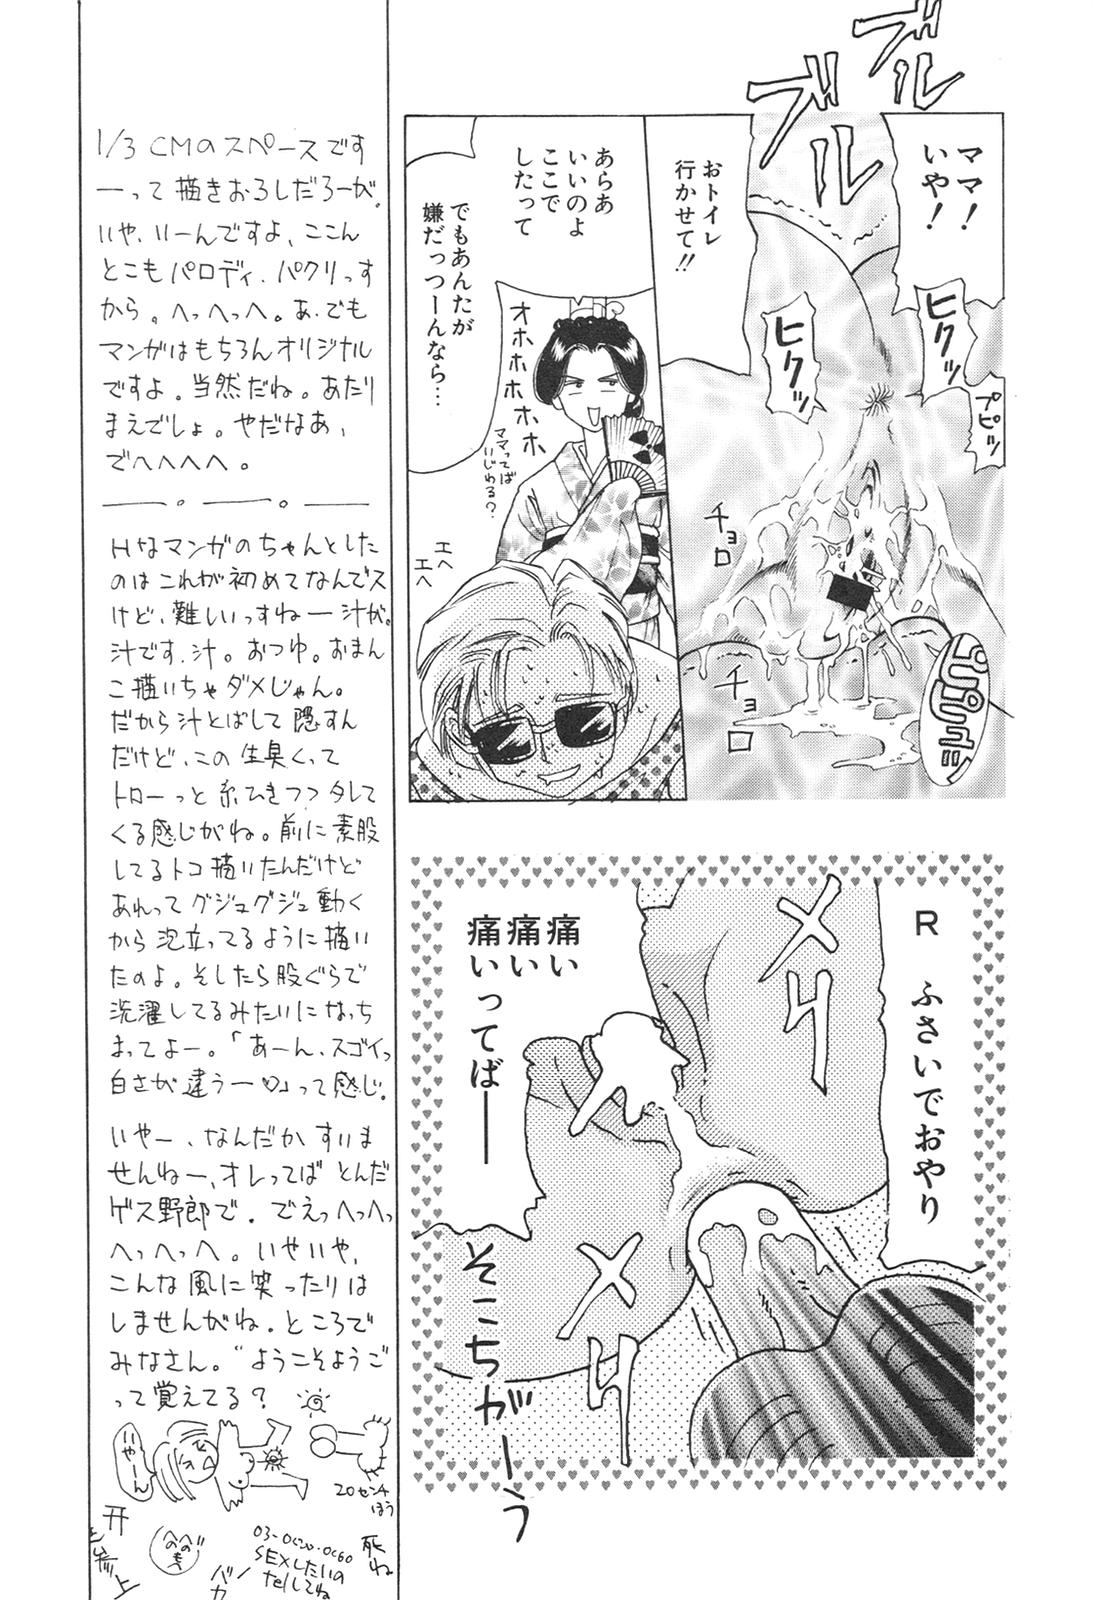 ブルブル
ママ！
いや！
おトイレ
行かせて!!
ヒクッ
ヒクッ
プピッ
チョロ
チョロ
あらあ
いいのよ
ここで
したって
でもあんたが
嫌だっつーんなら…
オホホホホホ
ママってば
いじわる?
エヘ
エヘ
R ふさいでおやり
メリ
メリ
痛い
痛い
痛いってば――
そこちがーう
1/3 CMのスペースです
―って描きおろしだろーが。
いや、いーんですよ、ここん
とこもパロディ、パクリっす
から。へっへっへ。あ、でも
マンガはもちろんオリジナル
ですよ。当然だね。あたり
まえでしょ。やだなあ、
でへへへへ。
Hなマンガのちゃんとした
のはこれが初めてなんでス
けど、難しいっすねー汁が。
汁です、汁。おつゆ。おまん
こ描いちゃダメじゃん。
だから汁とばして隠すん
だけど、この生臭くって
トローっと糸ひきつつタレて
くる感じがね。前に素股
してるトコ描いたんだけど
あれってグジュグジュ動く
から泡立ってるように描い
たのよ。そしたら股ぐらで
洗濯してるみたいになっち
まってよー。「あーん、スゴイっ
白さが違うー♡」って感じ。
いやー、なんだかすいま
せんねー、オレってばとんだ
ゲス野郎で。でえっへっへっ
へっへっへ。いやいや、
こんな風に笑ったりは
しませんがね。ところで
みなさん。“ようこそようこ”
って覚えてる?
いやーん
20センチ
ほう
参上
へのへのも
バカ
SEXしたいの
telしてね
死ね